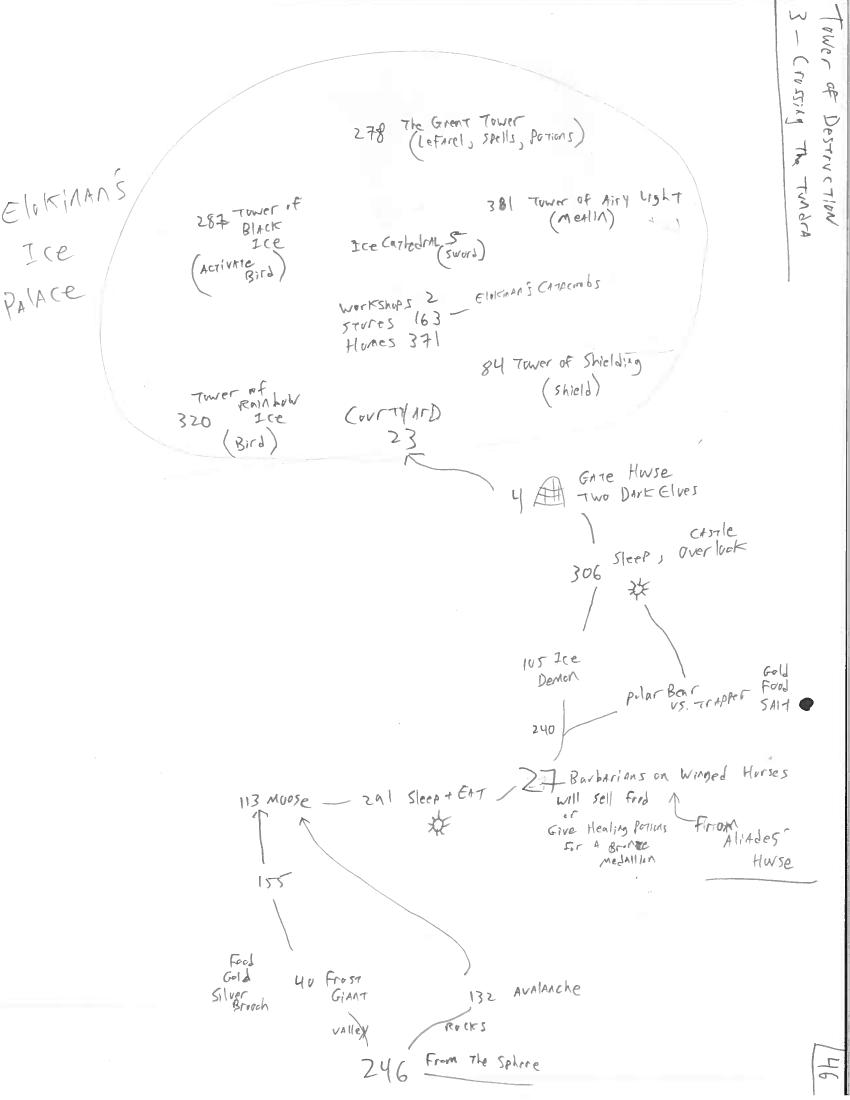 Tower of Destruction
3 - Crossing The Tundra
278 The Great Tower
(Lefarel, Spells, Potions)
Elokinan's
Ice
Palace
287 Tower of
Black
Ice
(Activate
Bird)
381 Tower of Airy Light
(Merlin)
Ice Cathedral 5
(Sword)
Workshops 2
Stores 163
Homes 371
Elokinan's Catacombs
84 Tower of Shielding
(Shield)
Tower of
Rainbow
320 Ice
(Bird)
Courtyard
23
4 Gate House
Two Dark Elves
306 Sleep, Castle
Overlook
105 Ice
Demon
Polar Bear
vs. Trapper
Gold
Food
Salt
240
27 Barbarians on Winged Horses
will sell food
or
Give Healing Potions
for a Bronze
medallion
From
Aliades'
House
113 Moose
291 Sleep + Eat
155
Food
Gold
Silver
Brooch
40 Frost
Giant
132 Avalanche
Valley
Rocks
246 From The Sphere
46